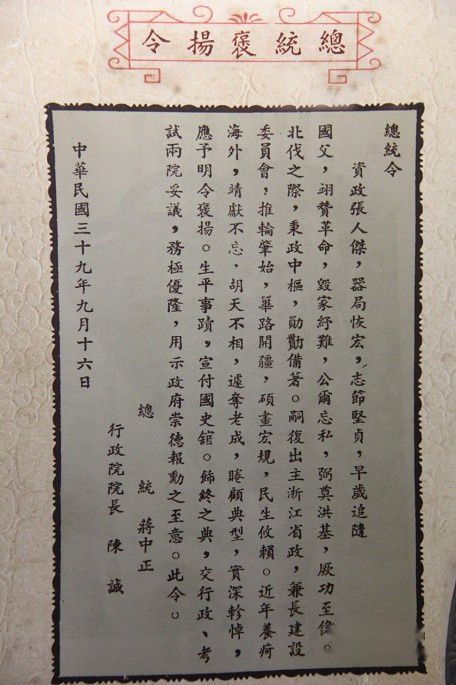 總統褒揚令
總統令
資政張人傑，器局恢宏，志節堅貞，早歲追隨
國父，翊贊革命，毀家紓難，公爾忘私，弼奠洪基，厥功至偉。
北伐之際，秉政中樞，勛勩備著。嗣復出主浙江省政，兼長建設
委員會，推輪肇始，蓽路開疆，碩畫宏規，民生攸賴。近年養疴
海外，靖獻不忘．胡天不相，遽奪老成，睠顧典型，實深軫悼，
應予明令褒揚。生平事蹟，宣付國史館。飾終之典，交行政、考
試兩院妥議，務極優隆，用示政府崇德報勳之至意。此令。
總統 蔣中正
行政院院長 陳誠
中華民國三十九年九月十六日